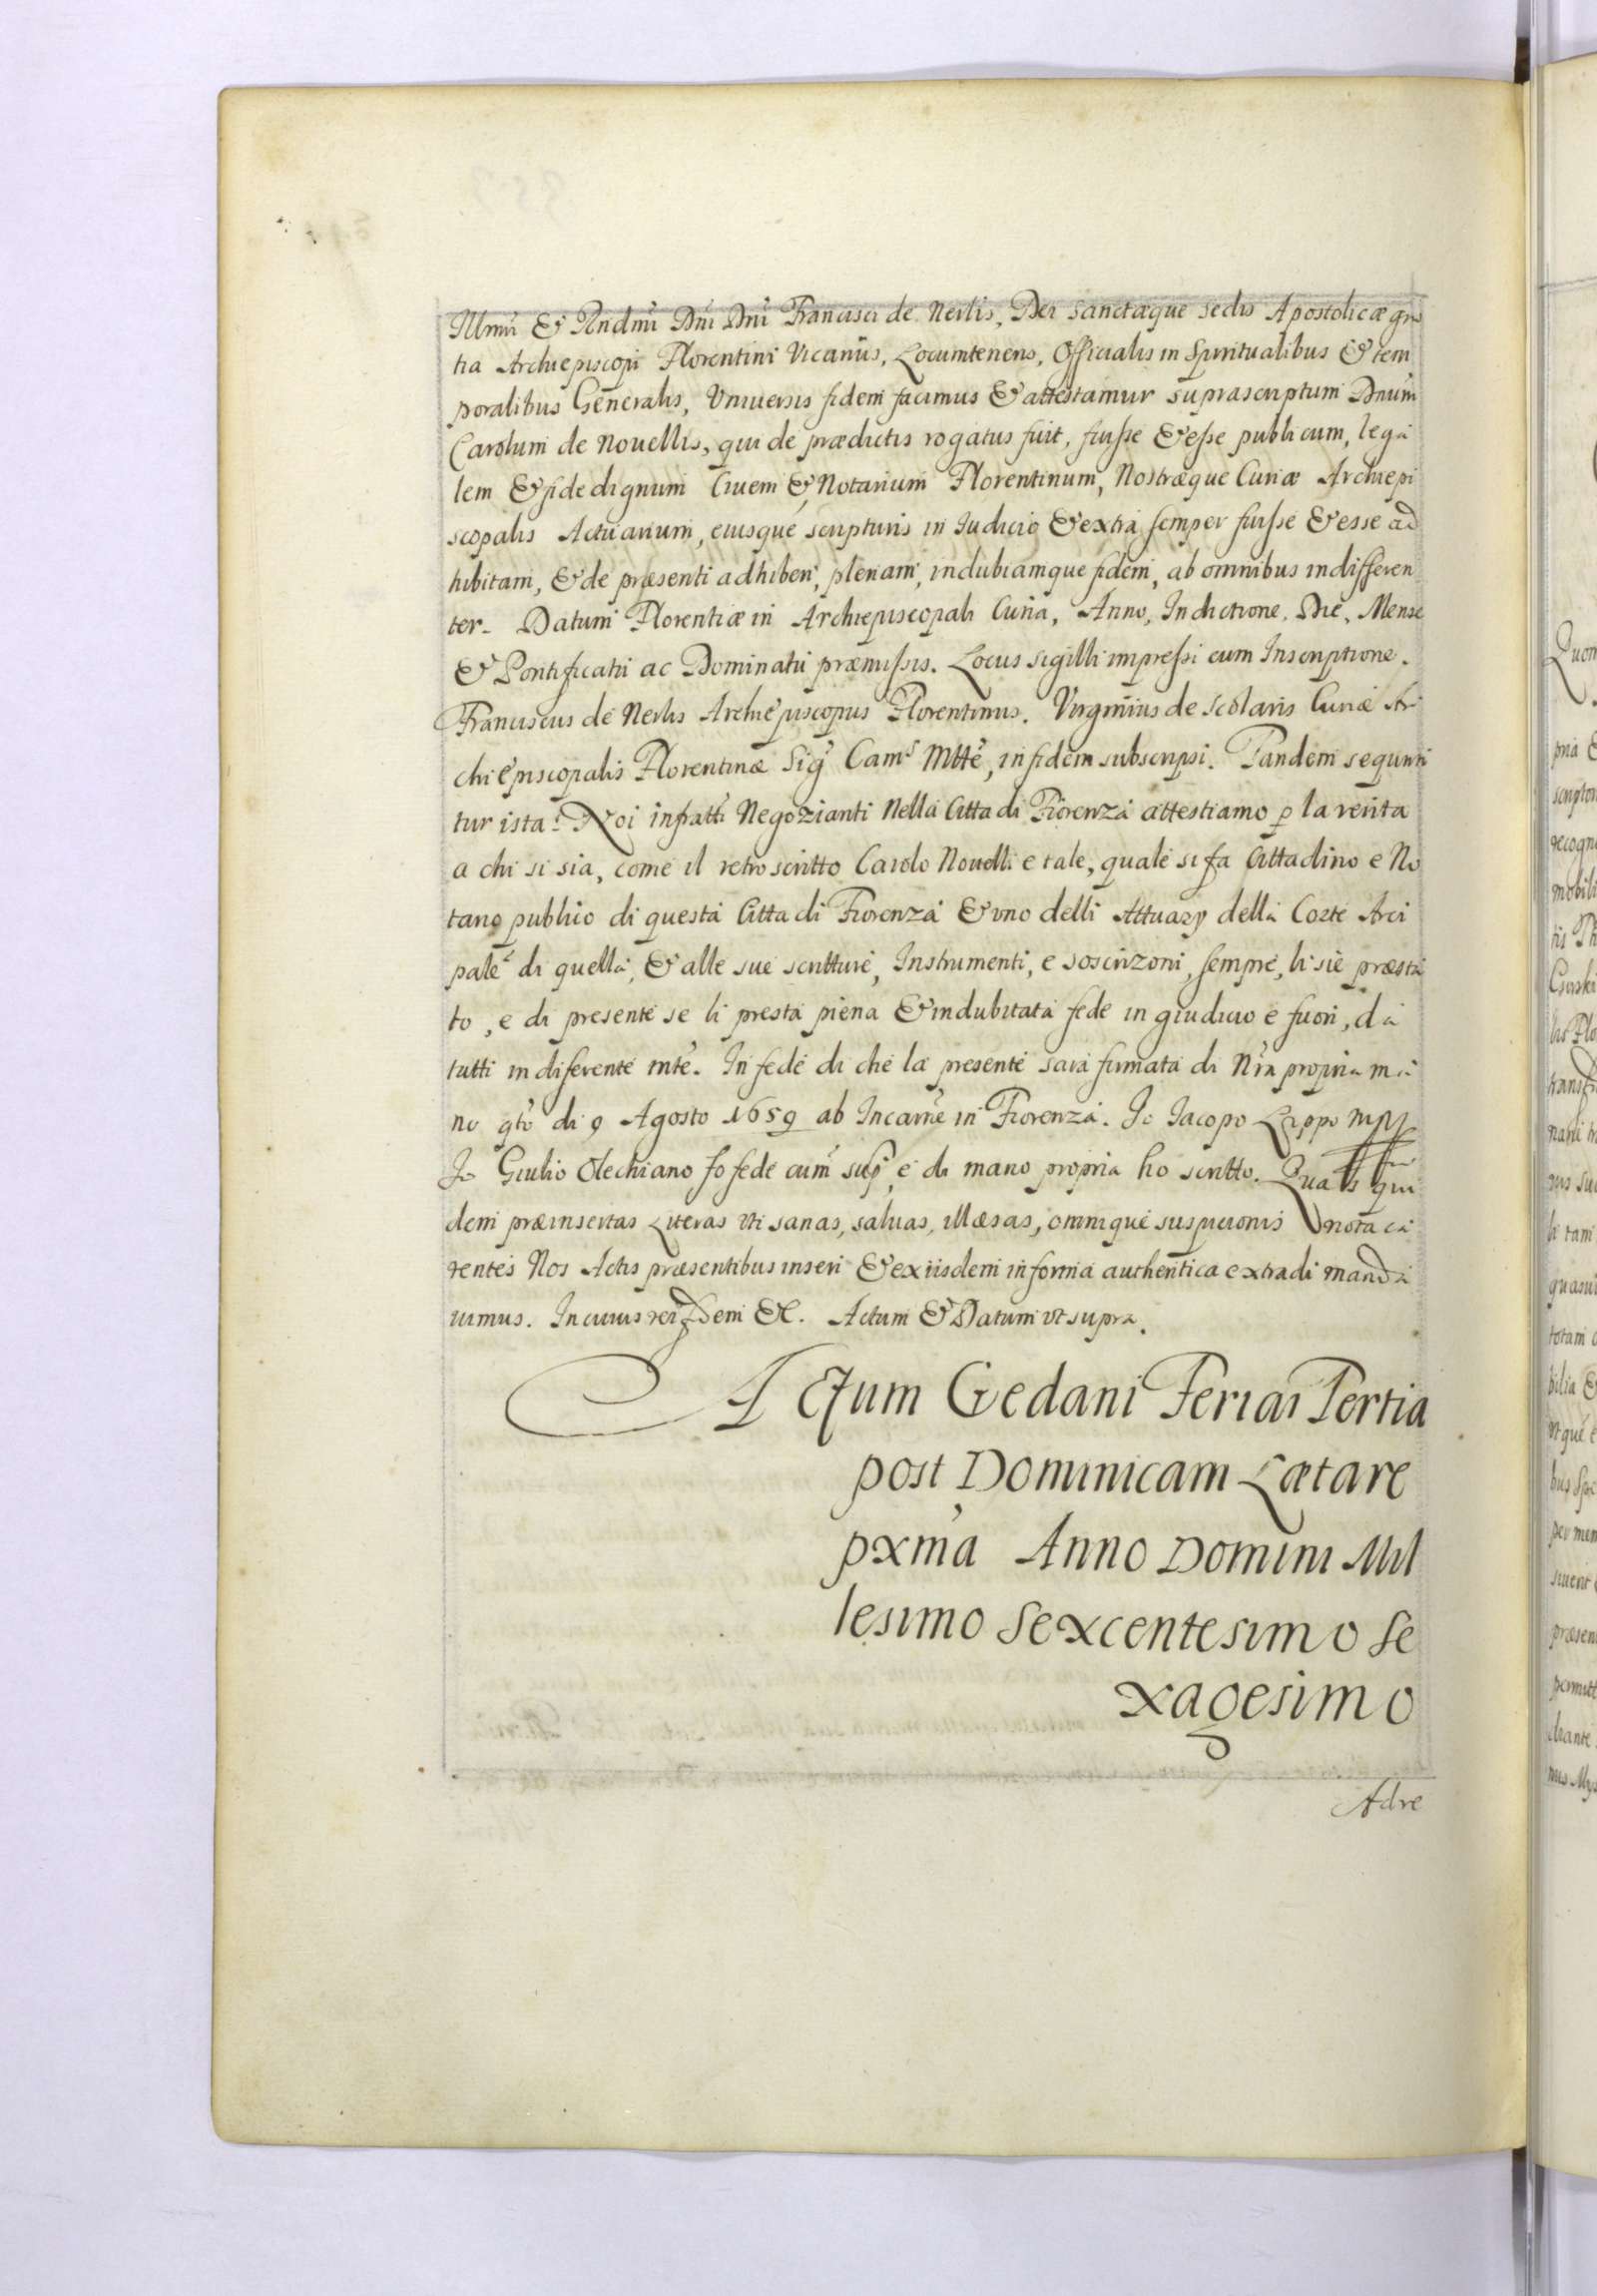 Illmi & Rndmi Dni Dni Francisci de Nerlis, Dei sanctæque sedis Apostolicæ gra
tia Archiepiscopi Florentini Vicarius, Locumtenens, Officialis in Spiritualibus & tem
poralibus Generalis, Vniuersis fidem facimus & attestamur suprascriptum Dnum
Carolum de Nouellis, qui de prædictis rogatus fuit, fuisse & esse publicum, lega
lem & fide dignum Ciuem & Notarium Florentinum, Nostræque Curiæ Archiepi
scopalis Actuarium, eiusque scripturis in Iudicio & extra semper fuisse & esse ad
hibitam, & de præsenti adhiberi, plenam, indubiamque fidem, ab omnibus indifferen
ter. Datum Florentiæ in Archiepiscopali Curia, Anno, Indictione, Die, Mense
& Pontificatu ac Dominatu præmissis. Locus sigilli impressi cum Inscriptione.
Franciscus de Nerlis Archiepiscopus Florentinus. Virginius de Scolaris Curiæ Ar
chiepiscopalis Florentinæ Sig Cams Mtte, in fidem subscripsi. Tandem sequun
tur ista: Noi infratti Negozianti Nella Citta di Fiorenza attestiamo p la verita
a chi si sia, come il retroscritto Carolo Nouelli e tale, quale si fa Cittadino e No
tano publico di questa Citta di Fiorenza & vno delli Attuary della Corte Arci
pale di quella, & alle sue scritture, Instrumenti, e soscrizoni, sempre, li siè præsta
to, e di presente se li presta piena & indubitata fede in giudicio e fuori, da
tutti indiferente mte. In fede di che la presente sara firmata di Nra propria ma
no qto di 9 Agosto 1659 ab Incarne in Fiorenza. Io Iacopo Lippo mpp
Io Giulio Olechiano fo fede cum sup, e di mano propria ho scritto. Quas qui
dem præinsertas Literas vti sanas, saluas, illæsas, omnique suspicionis nota ca
rentes Nos Actis præsentibus inseri & ex iisdem in forma authentica extradi manda
uimus. In cuius rei fidem &c. Actum & Datum vt supra.
Actum Gedani Feria Tertia
post Dominicam Lætare
pxma Anno Domini Mil
lesimo Sexcentesimo Se
xagesimo
Adre